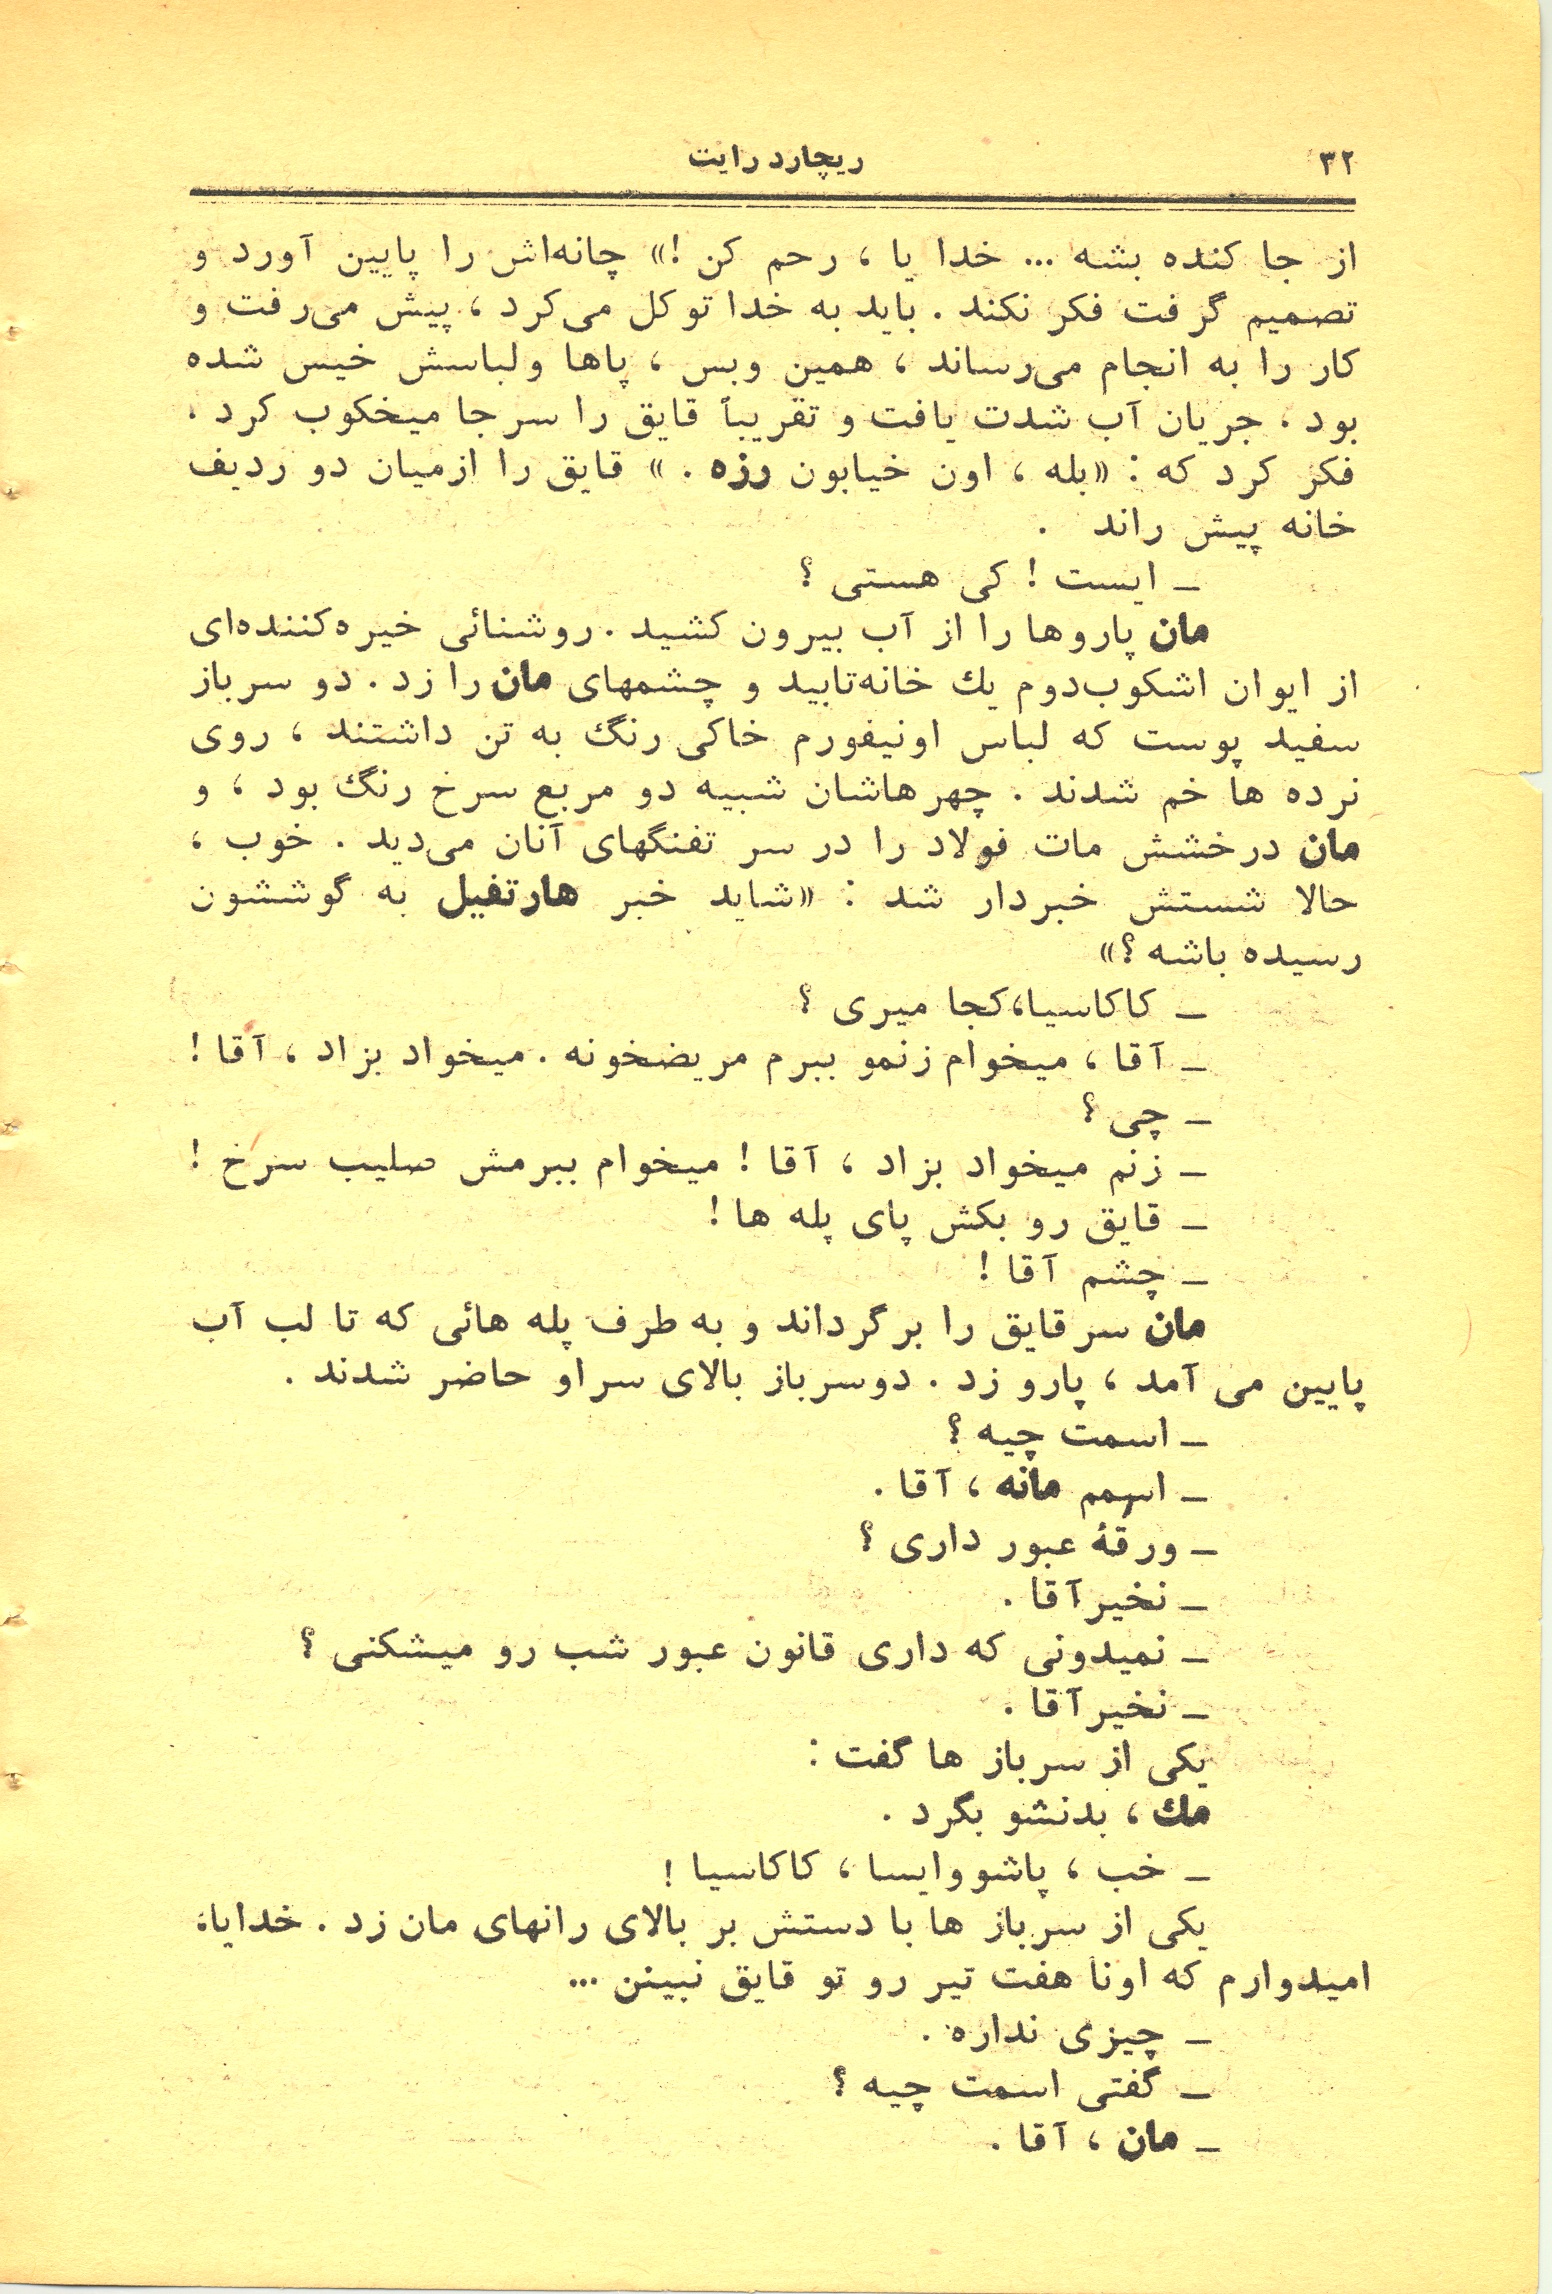 ۳۲
ریچارد رایت
از جا کنده بشه ... خدا یا ، رحم کن !» چانه‌اش را پایین آورد و
تصمیم گرفت فکر نکند . باید به خدا توکل می‌کرد ، پیش می‌رفت و
کار را به انجام می‌رساند ، همین وبس ، پاها ولباسش خیس شده
بود . جریان آب شدت یافت و تقریباً قایق را سرجا میخکوب کرد .
فکر کرد که : «بله ، اون خیابون رزه . » قایق را ازمیان دو ردیف
خانه پیش راند .
ـ ایست ! کی هستی ؟
مان پاروها را از آب بیرون کشید . روشنائی خیره‌کننده‌ای
از ایوان اشکوب‌دوم یك خانه‌تابید و چشمهای مان را زد . دو سرباز
سفید پوست که لباس اونیفورم خاکی رنگ به تن داشتند ، روی
نرده ها خم شدند . چهرهاشان شبیه دو مربع سرخ رنگ بود ، و
مان درخشش مات فولاد را در سر تفنگهای آنان می‌دید . خوب ،
حالا شستش خبردار شد : «شاید خبر هارتفیل به گوششون
رسیده باشه ؟»
ـ کاکاسیا،کجا میری ؟
ـ آقا ، میخوام زنمو ببرم مریضخونه . میخواد بزاد ، آقا !
ـ چی ؟
ـ زنم میخواد بزاد ، آقا ! میخوام ببرمش صلیب سرخ !
ـ قایق رو بکش پای پله ها !
ـ چشم آقا !
مان سرقایق را برگرداند و به طرف پله هائی که تا لب آب
پایین می آمد ، پارو زد . دوسرباز بالای سراو حاضر شدند .
ـ اسمت چیه ؟
ـ اسمم مانه ، آقا .
ـ ورقهٔ عبور داری ؟
ـ نخیرآقا .
ـ نمیدونی که داری قانون عبور شب رو میشکنی ؟
ـ نخیرآقا .
یکی از سرباز ها گفت :
مك ، بدنشو بگرد .
ـ خب ، پاشووایسا ، کاکاسیا !
یکی از سرباز ها با دستش بر بالای رانهای مان زد . خدایا،
امیدوارم که اونا هفت تیر رو تو قایق نبینن ...
ـ چیزی نداره .
ـ گفتی اسمت چیه ؟
ـ مان ، آقا .